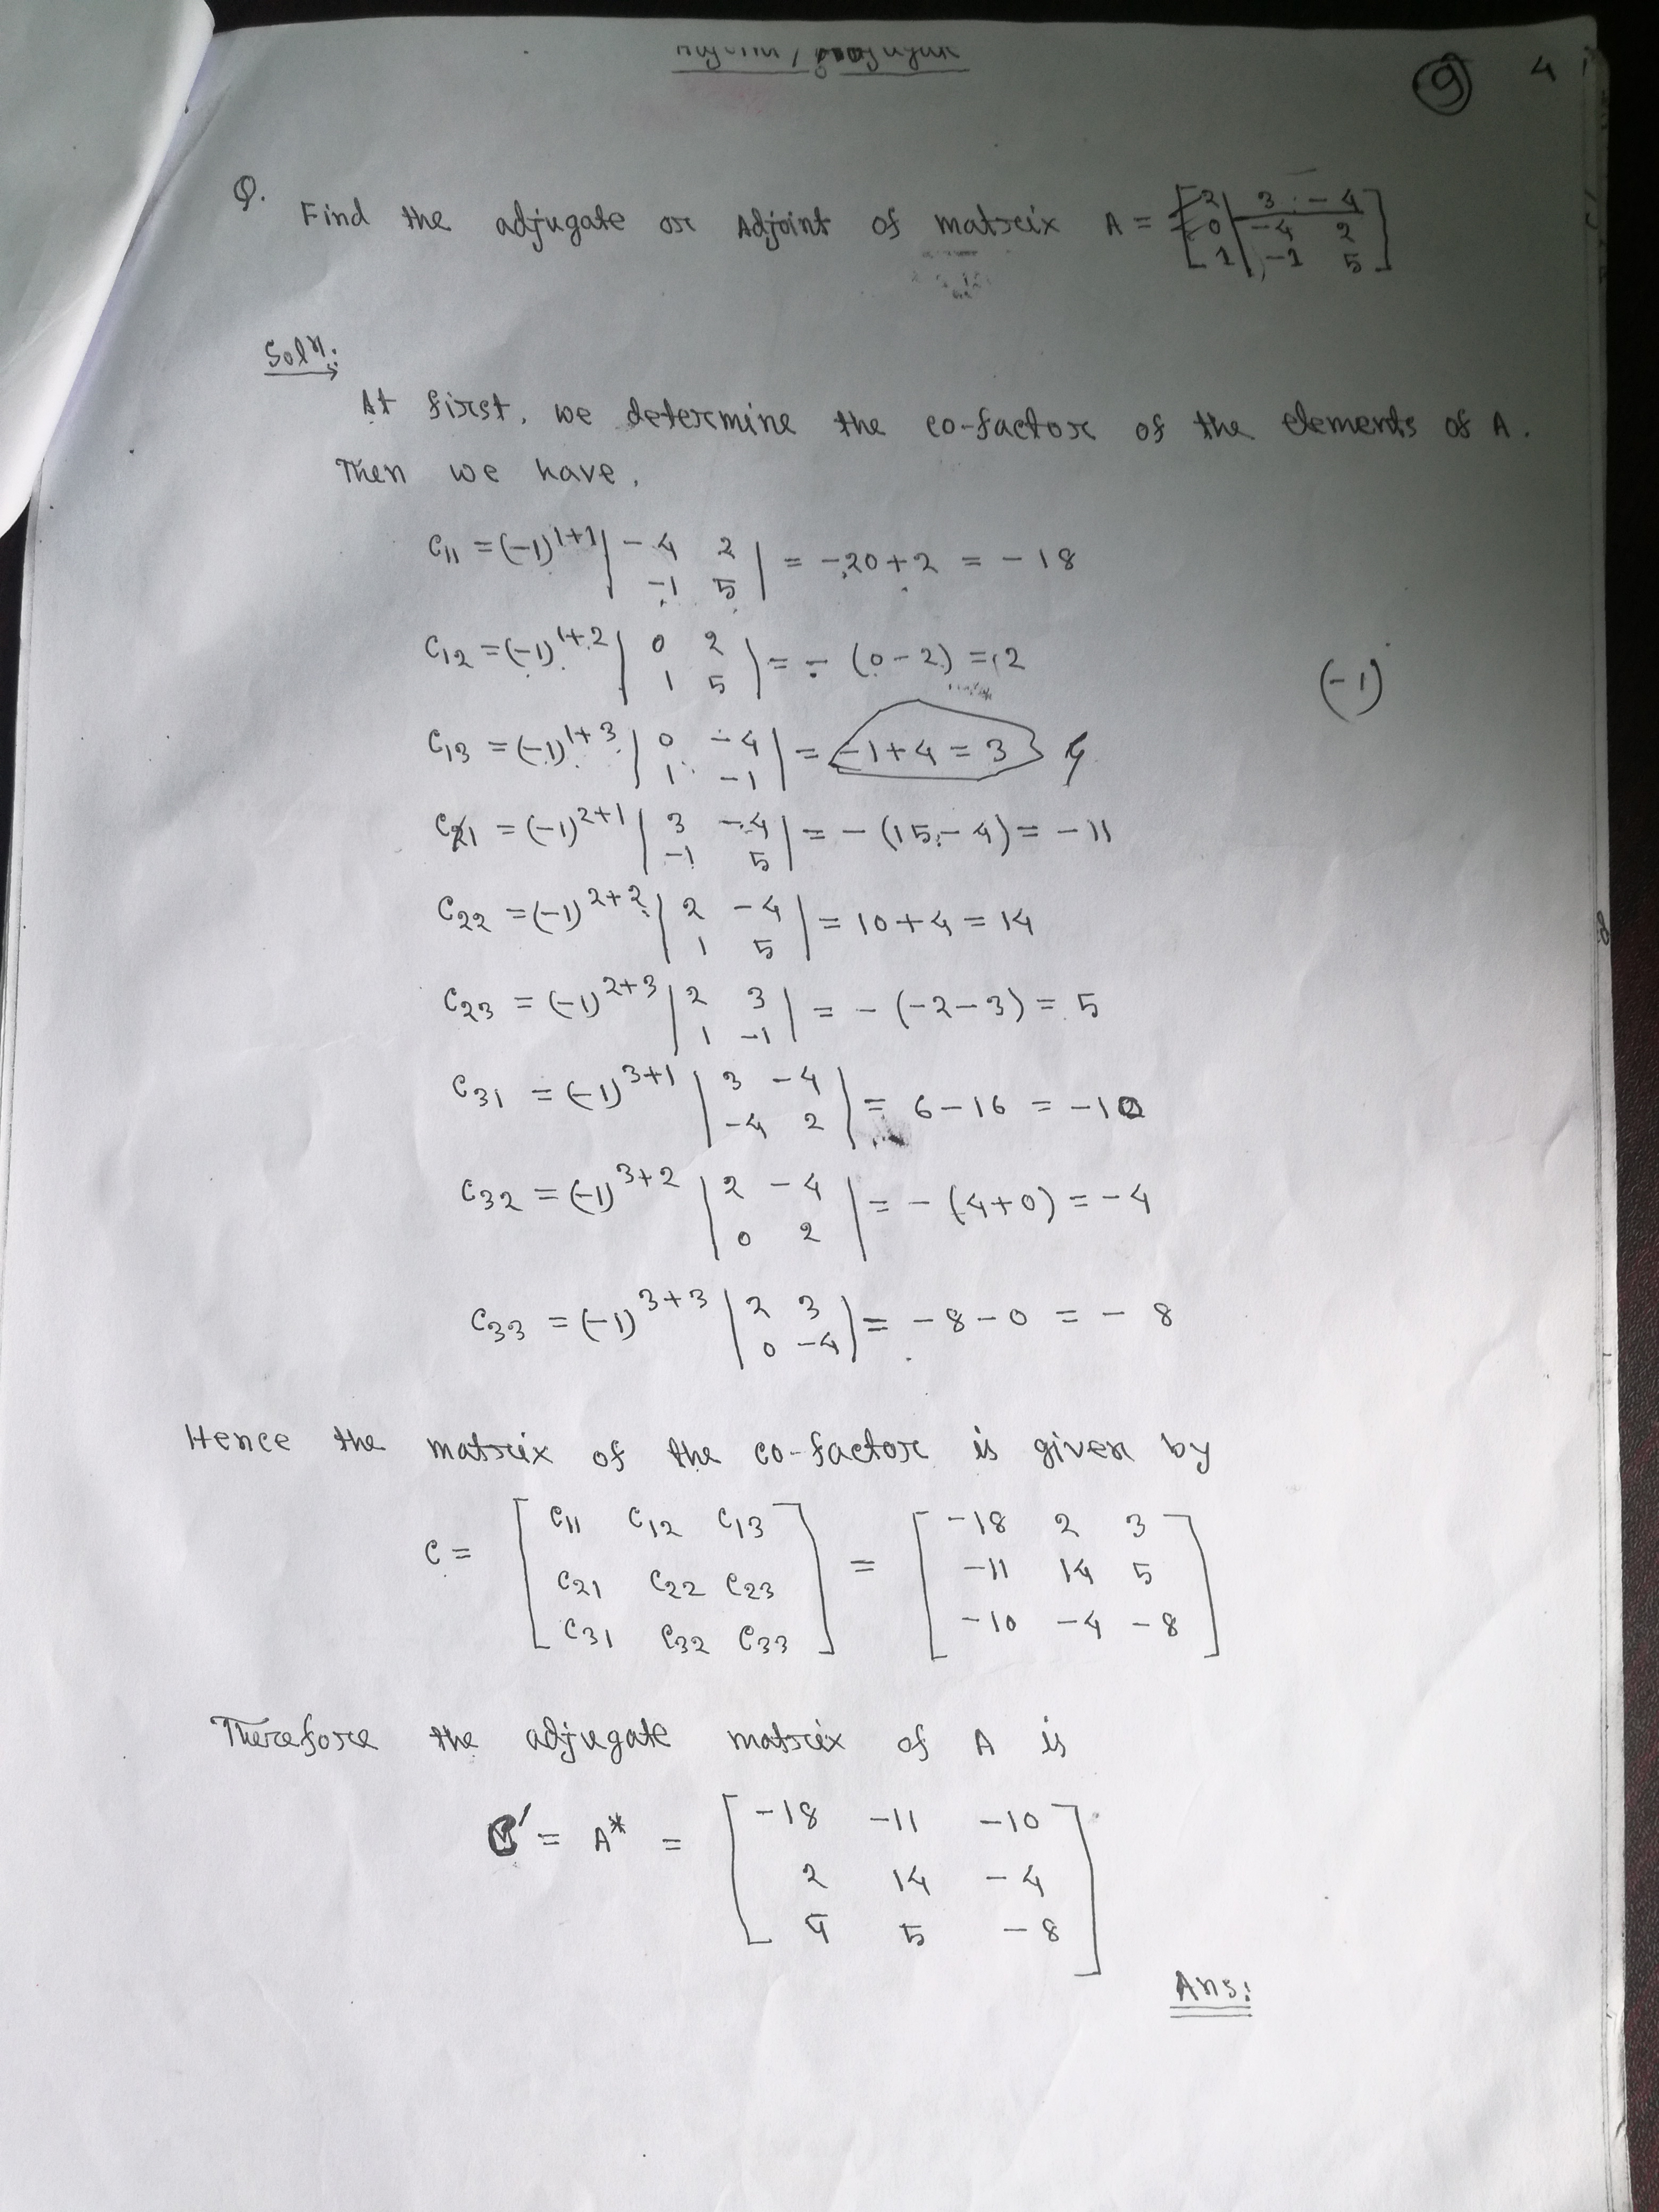 9 4
Q. Find the adjugate or Adjoint of matrix A = [2 3 -4
0 -4 2
1 -1 5]
Solⁿ:
At first, we determine the co-factor of the elements of A.
Then we have,
C11 = (-1)^1+1 |-4 2 -1 5| = -20+2 = -18
C12 = (-1)^1+2 |0 2 1 5| = - (0-2) = 2
(-1)
C13 = (-1)^1+3 |0 -4 1 -1| = -1+4 = 3 4
C21 = (-1)^2+1 |3 -4 -1 5| = - (15-4) = -11
C22 = (-1)^2+2 |2 -4 1 5| = 10+4 = 14
C23 = (-1)^2+3 |2 3 1 -1| = - (-2-3) = 5
C31 = (-1)^3+1 |3 -4 -4 2| = 6-16 = -10
C32 = (-1)^3+2 |2 -4 0 2| = - (4+0) = -4
C33 = (-1)^3+3 |2 3 0 -4| = -8-0 = -8
Hence the matrix of the co-factor is given by
C = [C11 C12 C13
C21 C22 C23
C31 C32 C33] = [-18 2 3
-11 14 5
-10 -4 -8]
Therefore the adjugate matrix of A is
C′ = A* = [-18 -11 -10
2 14 -4
4 5 -8]
Ans: